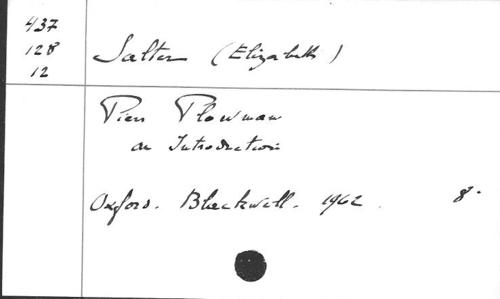 437
128
12
Salter (Elizabeth)
Piers Plowman
an Introduction
Oxford. Blackwell. 1962. 8°